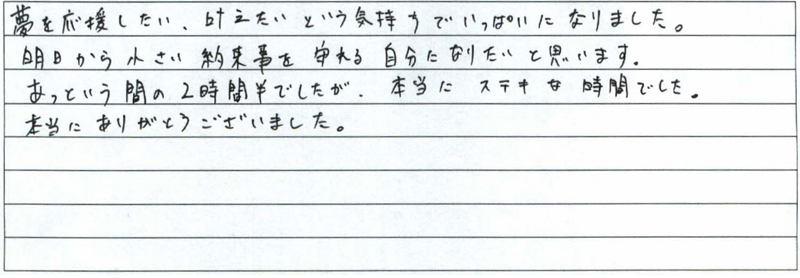 夢を応援したい、叶えたいという気持ちでいっぱいになりました。
明日から小さい約束事を守れる自分になりたいと思います。
あっという間の2時間半でしたが、本当にステキな時間でした。
本当にありがとうございました。